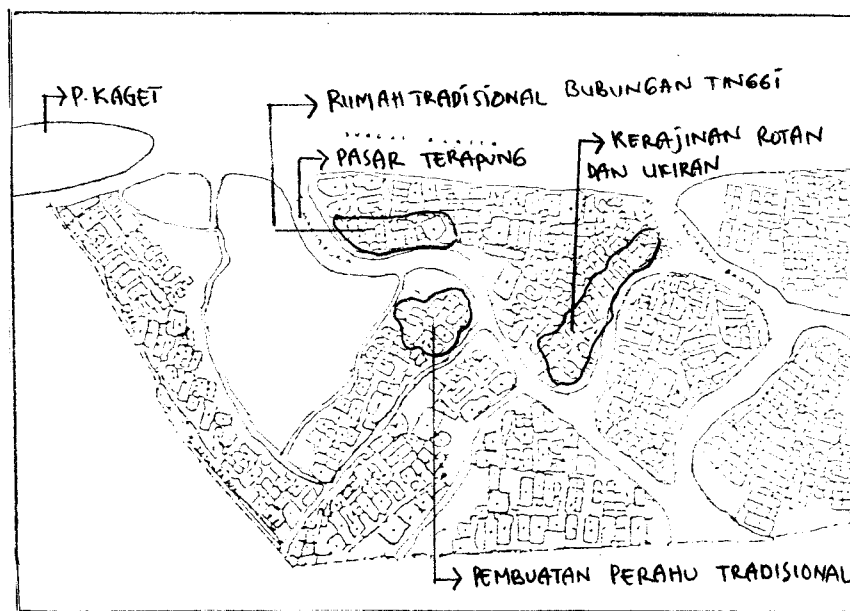 P. KAGET
RUMAH TRADISIONAL BUBUNGAN TINGGI
PASAR TERAPUNG
KERAJINAN ROTAN
DAN UKIRAN
PEMBUATAN PERAHU TRADISIONAL